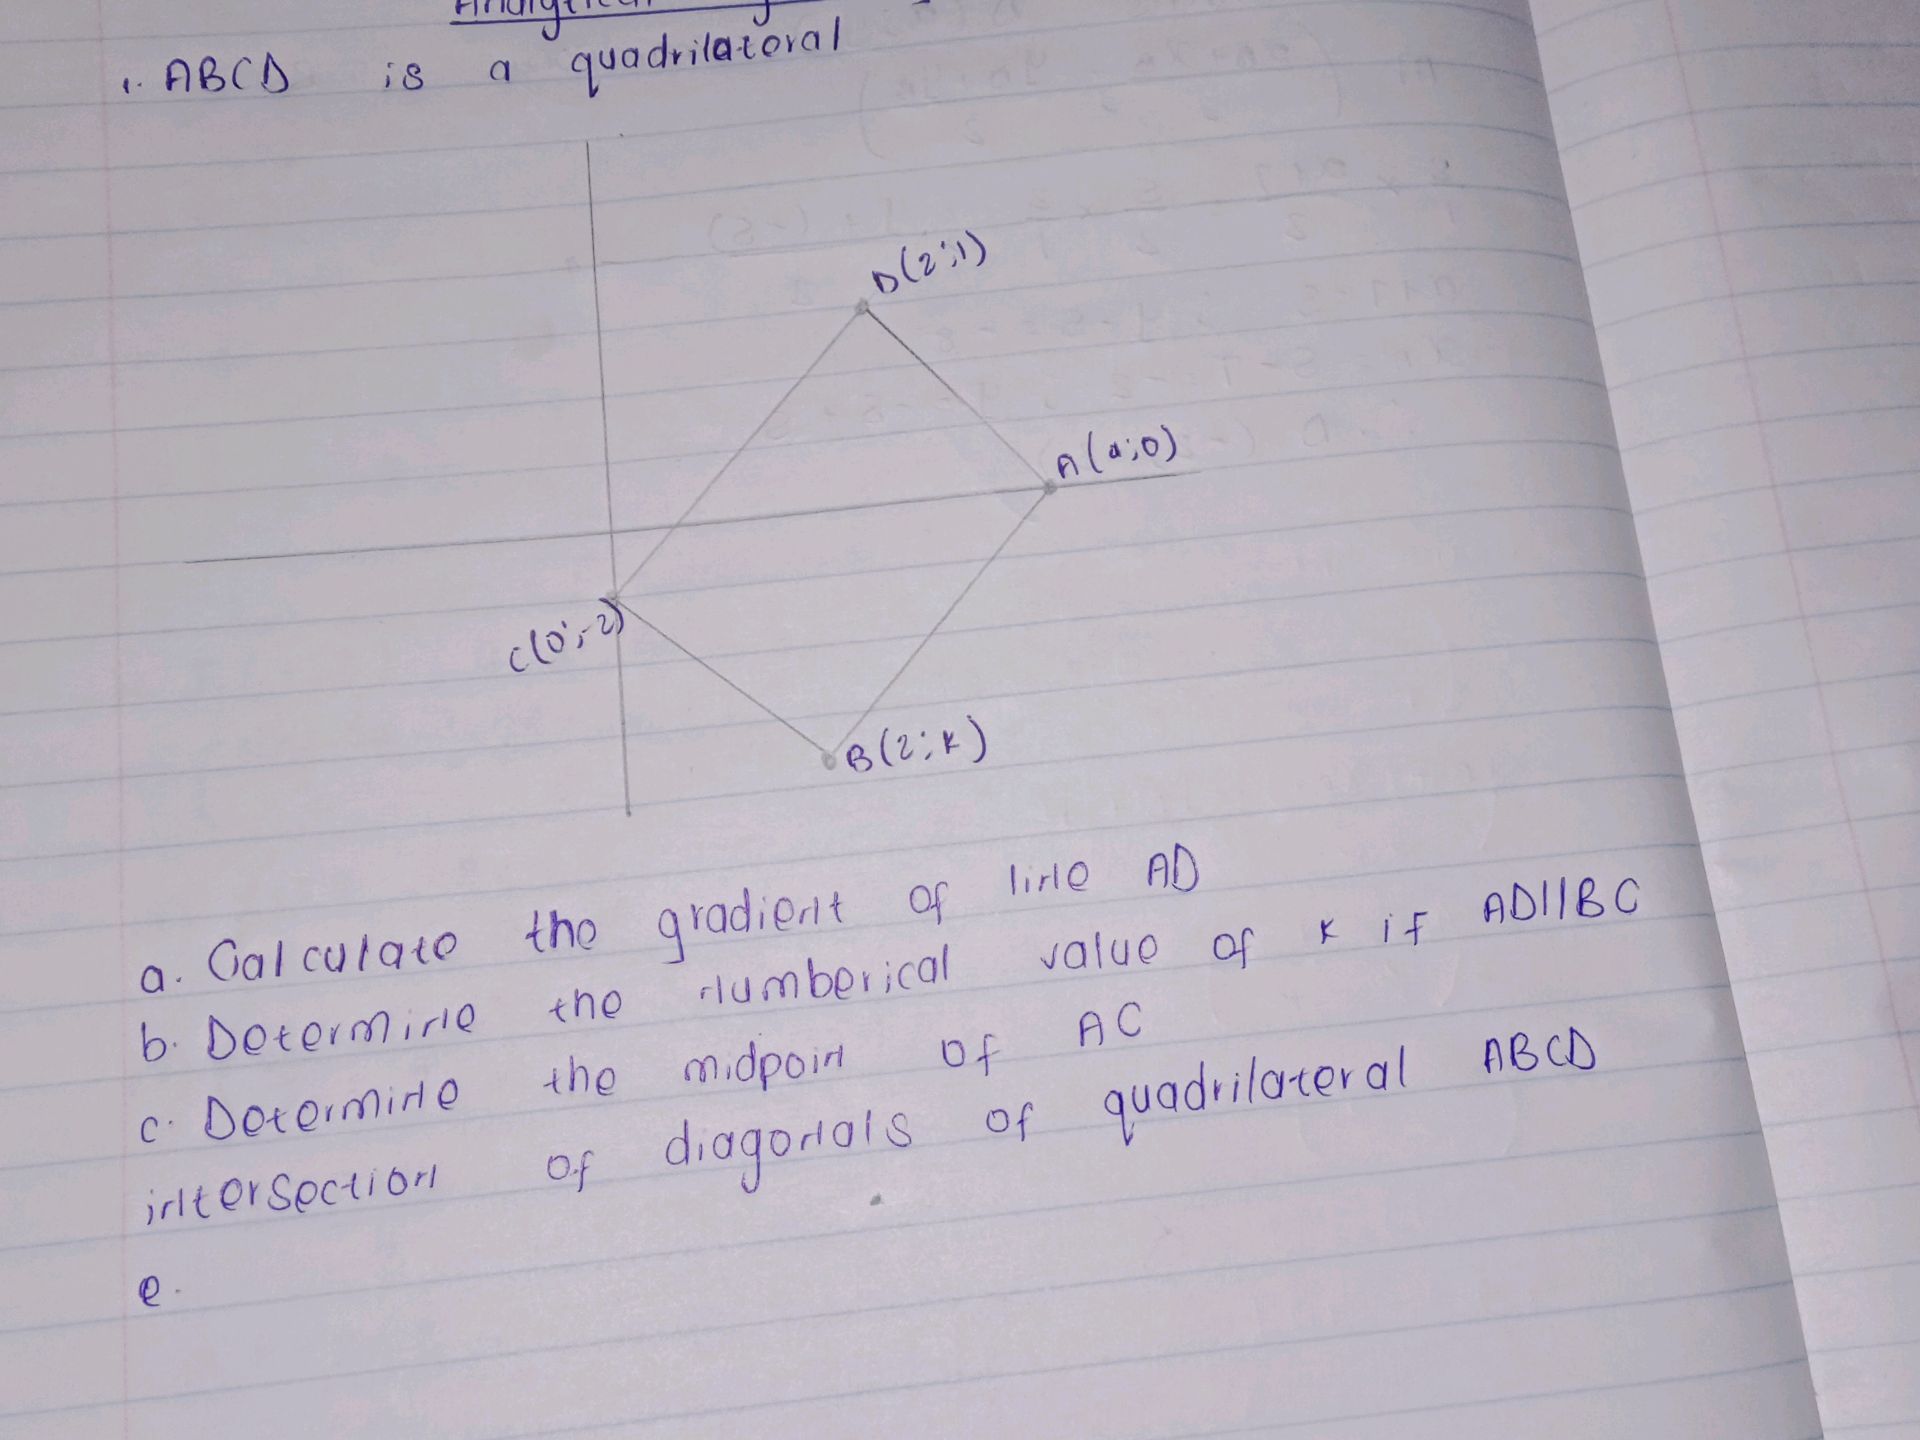 1. ABCD is a quadrilatoral
D(2;1)
A(a;0)
C(0;-2)
B(2;k)
a. Calculate the gradient of line AD
b. Determine the numberical value of k if AD||BC
c. Determine the midpoin of AC
intersection of diagonals of quadrilateral ABCD
e.